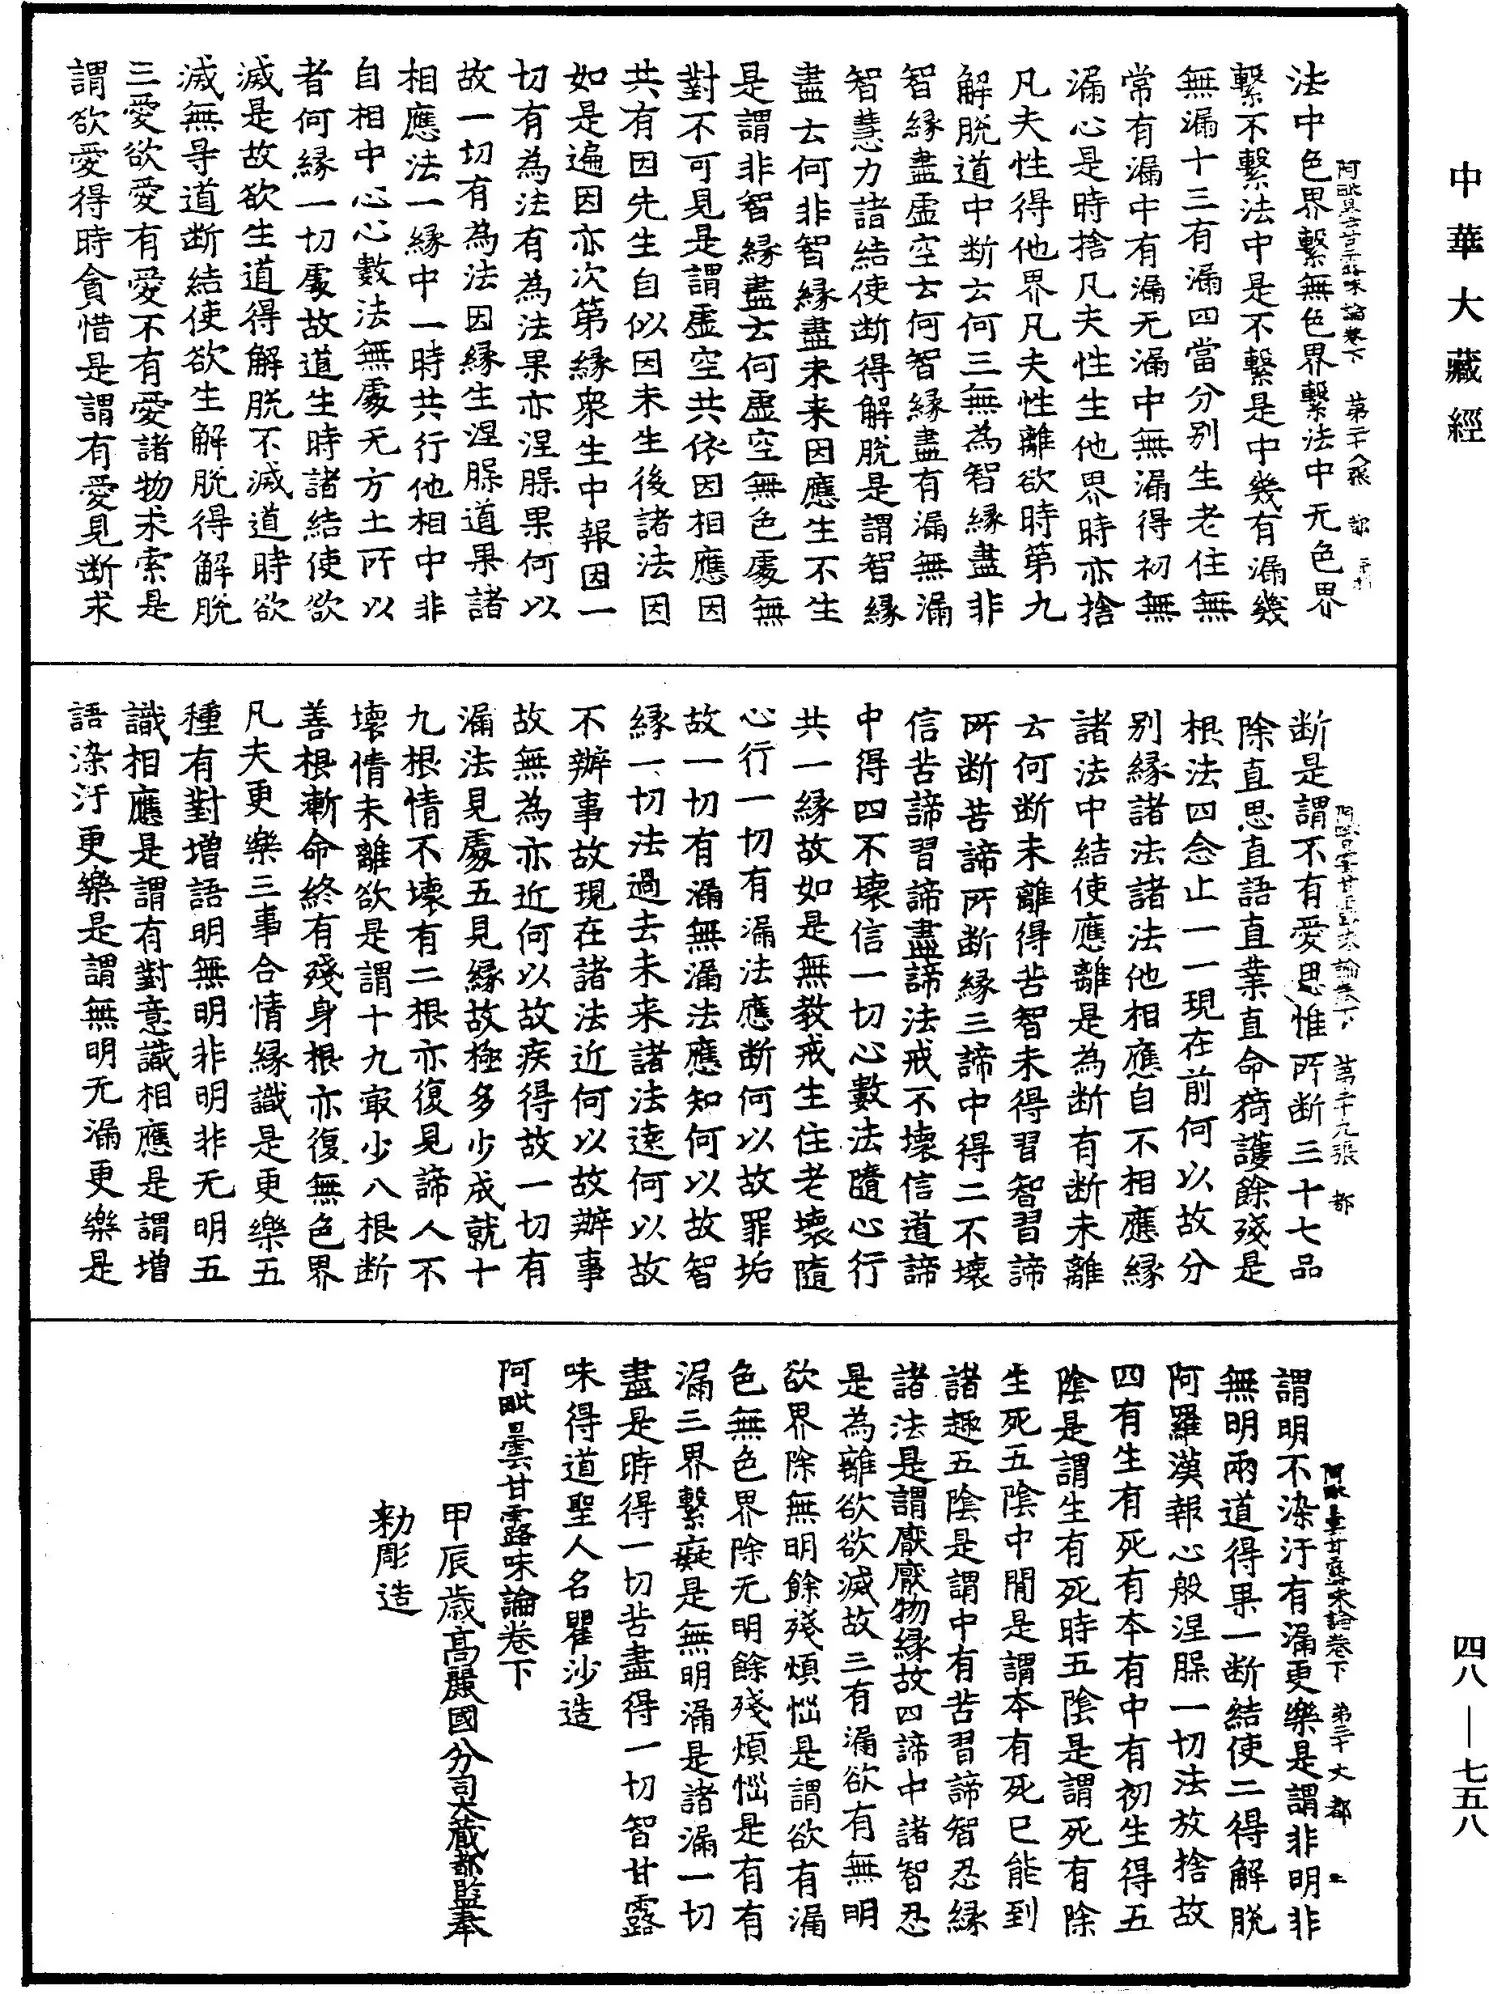 中華大藏經
阿毗曇甘露味論卷下　第二十八張　都
法中色界繫無色界繫法中无色界
繫不繫法中是不繫是中幾有漏幾
無漏十三有漏四當分別生老住無
常有漏中有漏无漏中無漏得初無
漏心是時捨凡夫性生他界時亦捨
凡夫性得他界凡夫性離欲時第九
解脫道中断云何三無為智緣盡非
智緣盡虛空云何智緣盡有漏無漏
智慧力諸結使断得解脫是謂智緣
盡云何非智緣盡未来因應生不生
是謂非智緣盡云何虛空無色處無
對不可見是謂虛空共依因相應因
共有因先生自似因未生後諸法因
如是遍因亦次第緣衆生中報因一
切有為法有為法果亦涅槃果何以
故一切有為法因緣生涅槃道果諸
相應法一緣中一時共行他相中非
自相中心心數法無處无方土所以
者何緣一切處故道生時諸結使欲
滅是故欲生道得解脫不滅道時欲
滅無㝵道断結使欲生解脫得解脫
三愛欲愛有愛不有愛諸物求索是
謂欲愛得時貪惜是謂有愛見断求
阿毗曇甘露味論卷下　第二十九張　都
断是謂不有愛思惟所断三十七品
除直思直語直業直命猗護餘殘是
根法四念止一一現在前何以故分
別緣諸法諸法他相應自不相應緣
諸法中結使應離是為断有断未離
云何断未離得苦智未得習智習諦
所断苦諦所断緣三諦中得二不壞
信苦諦習諦盡諦法戒不壞信道諦
中得四不壞信一切心數法隨心行
共一緣故如是無教戒生住老壞隨
心行一切有漏法應断何以故罪垢
故一切有漏無漏法應知何以故智
緣一切法過去未来諸法遠何以故
不辦事故現在諸法近何以故辦事
故無為亦近何以故疾得故一切有
漏法見處五見緣故極多少成就十
九根情不壞有二根亦復見諦人不
壞情未離欲是謂十九㝡少八根断
善根漸命終有殘身根亦復無色界
凡夫更樂三事合情緣識是更樂五
種有對增語明無明非明非无明五
識相應是謂有對意識相應是謂增
語染汙更樂是謂無明无漏更樂是
阿毗曇甘露味論卷下　第三十丈　都
謂明不染汙有漏更樂是謂非明非
無明兩道得果一断結使二得解脫
阿羅漢報心般涅槃一切法放捨故
四有生有死有本有中有初生得五
陰是謂生有死時五陰是謂死有除
生死五陰中閒是謂本有死已能到
諸趣五陰是謂中有苦習諦智忍緣
諸法是謂厭厭物緣故四諦中諸智忍
是為離欲欲滅故三有漏欲有無明
欲界除無明餘殘煩惱是謂欲有漏
色無色界除无明餘殘煩惱是有有
漏三界繫癡是無明漏是諸漏一切
盡是時得一切苦盡得一切智甘露
味得道聖人名瞿沙造
阿毗曇甘露味論卷下
甲辰歲高麗國分司大藏都監奉
勑彫造
四八—七五八